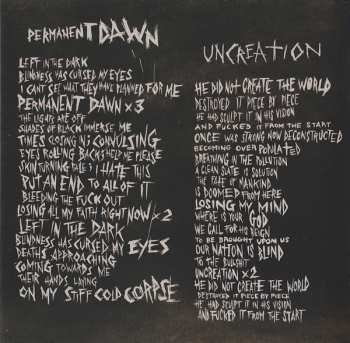 PERMANENT DAWN
LEFT IN THE DARK
BLINDNESS HAS CURSED MY EYES
I CANT SEE WHAT THEY HAVE PLANNED FOR ME
PERMANENT DAWN x3
THE LIGHTS ARE OFF
SHADES OF BLACK IMMERSE ME
TIMES CLOSING IN I'S CONVULSING
EYES ROLLING BACK HELP ME PLEASE
SKIN TURNING PALE I HATE THIS
PUT AN END TO ALL OF IT
BLEEDING THE FUCK OUT
LOSING ALL MY FAITH RIGHT NOW x2
LEFT IN THE DARK
BLINDNESS HAS CURSED MY EYES
DEATHS APPROACHING
COMING TOWARDS ME
THEIR HANDS LAYING
ON MY STIFF COLD CORPSE
UNCREATION
HE DID NOT CREATE THE WORLD
DESTROYED IT PIECE BY PIECE
HE HAD SCULPT IT IN HIS VISION
AND FUCKED IT FROM THE START
ONCE WAS STRONG NOW DECONSTRUCTED
BECOMING OVER POPULATED
BREATHING IN THE POLLUTION
A CLEAN SLATE IS SOLUTION
THE FATE OF MANKIND
IS DOOMED FROM HERE
LOSING MY MIND
WHERE IS YOUR GOD
WE CALL FOR HIS REIGN
TO BE BROUGHT UPON US
OUR NATION IS BLIND
TO THE BULLSHIT
UNCREATION x2
HE DID NOT CREATE THE WORLD
DESTROYED IT PIECE BY PIECE
HE HAD SCULPT IT IN HIS VISION
AND FUCKED IT FROM THE START